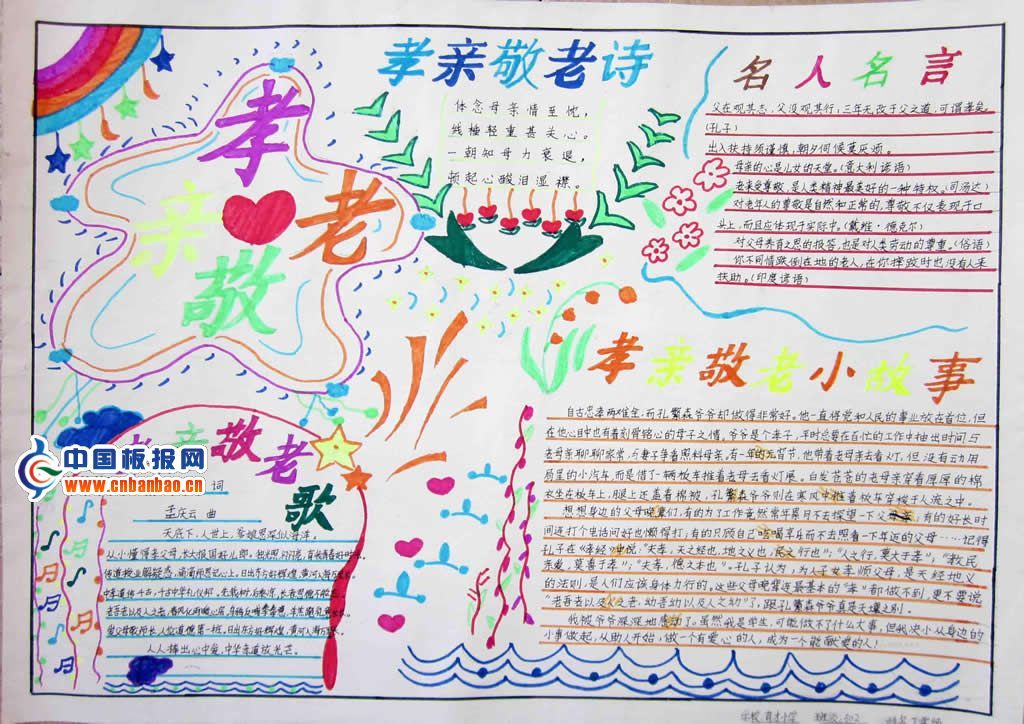 孝
亲
敬
老
孝亲敬老诗
体念母亲情至忱,
线柚轻重甚关心。
一朝知母力衰退,
顿起心酸泪湿襟。
名人名言
父在观其志,父没观其行,三年无改于父之道,可谓孝矣。
(孔子)
出入扶持须谨慎,朝夕伺候莫厌烦。
母亲的心是儿女的天堂。(意大利谚语)
老来受尊敬,是人类精神最美好的一种特权。(司汤达)
对老年人的尊敬是自然和正常的,尊敬不仅表现于口
头上,而且应体现于实际中。(戴维·德克尔)
对父母养育之恩的报答,也是对人类劳动的尊重。(俗语)
你不同情跌倒在地的老人,在你摔跤时也没有人来
扶助。(印度谚语)
孝亲敬老小故事
自古忠孝两难全,而孔繁森爷爷却做得非常好。他一直将党和人民的事业放在首位,但
在他心目中也有着刻骨铭心的母子之情。爷爷是个孝子,平时总要在百忙的工作中抽出时间与
老母亲聊聊家常,与妻子争着照料母亲,有一年的元宵节,他带着老母亲去看灯,但没有动用
局里的小汽车,而是借了一辆板车推着老母去看灯展。白发苍苍的老母亲穿着厚厚的棉
衣坐在板车上,腿上还盖着棉被,孔繁森爷爷则在寒风中推着板车穿梭于人流之中。
想想身边的父母晚辈们,有的为了工作竟然常年累月不去探望一下父母亲;有的好长时
间连打个电话问好也懒得打;有的只顾自己吃喝享乐而不去照看一下年迈的父母……记得
孔子在《孝经》中说:"夫孝,天之经也,地之义也,民之行也";"人之行,莫大于孝","教民
亲爱,莫善于孝";"夫孝,德之本也"。孔子认为,为人子女孝顺父母,是天经地义
的法则,是人们应该身体力行的,这些父母晚辈连最基本的"孝"都做不到,更不要说
"老吾老以及人之老,幼吾幼以及人之幼"了,跟孔繁森爷爷真是天壤之别。
我被爷爷深深地感动了。虽然我是学生,可能做不了什么大事,但我决心从身边的
小事做起,从助人开始,做一个有爱心的人,成为一个能献爱的人!
亲敬老
歌
中国板报网
www.cnbanbao.cn
词
孟庆云 曲
天底下,人世上,爹娘恩深似海洋。
从小懂得孝父母,长大报国好儿郎。
人人捧出心中爱,中华孝道放光芒。
学校 育才小学 班级:502